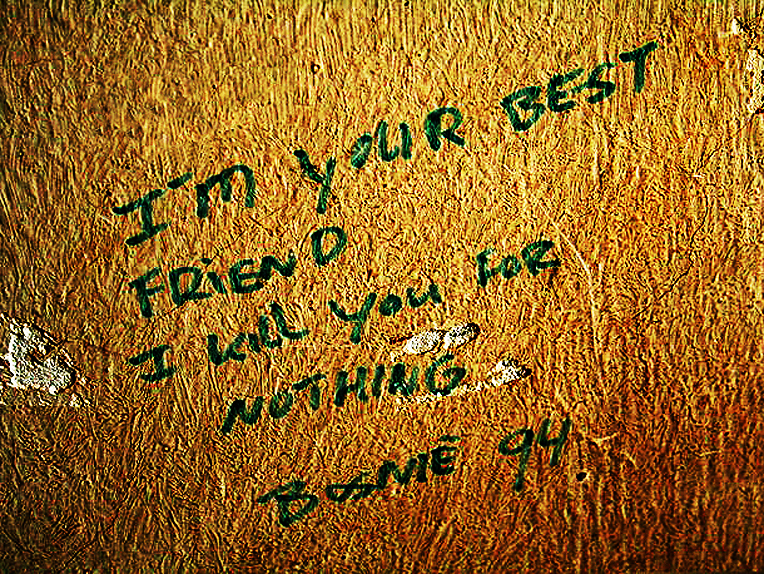 I'M YOUR BEST
FRIEND
I kill you FOR
NOTHING
BOSNIE 94.